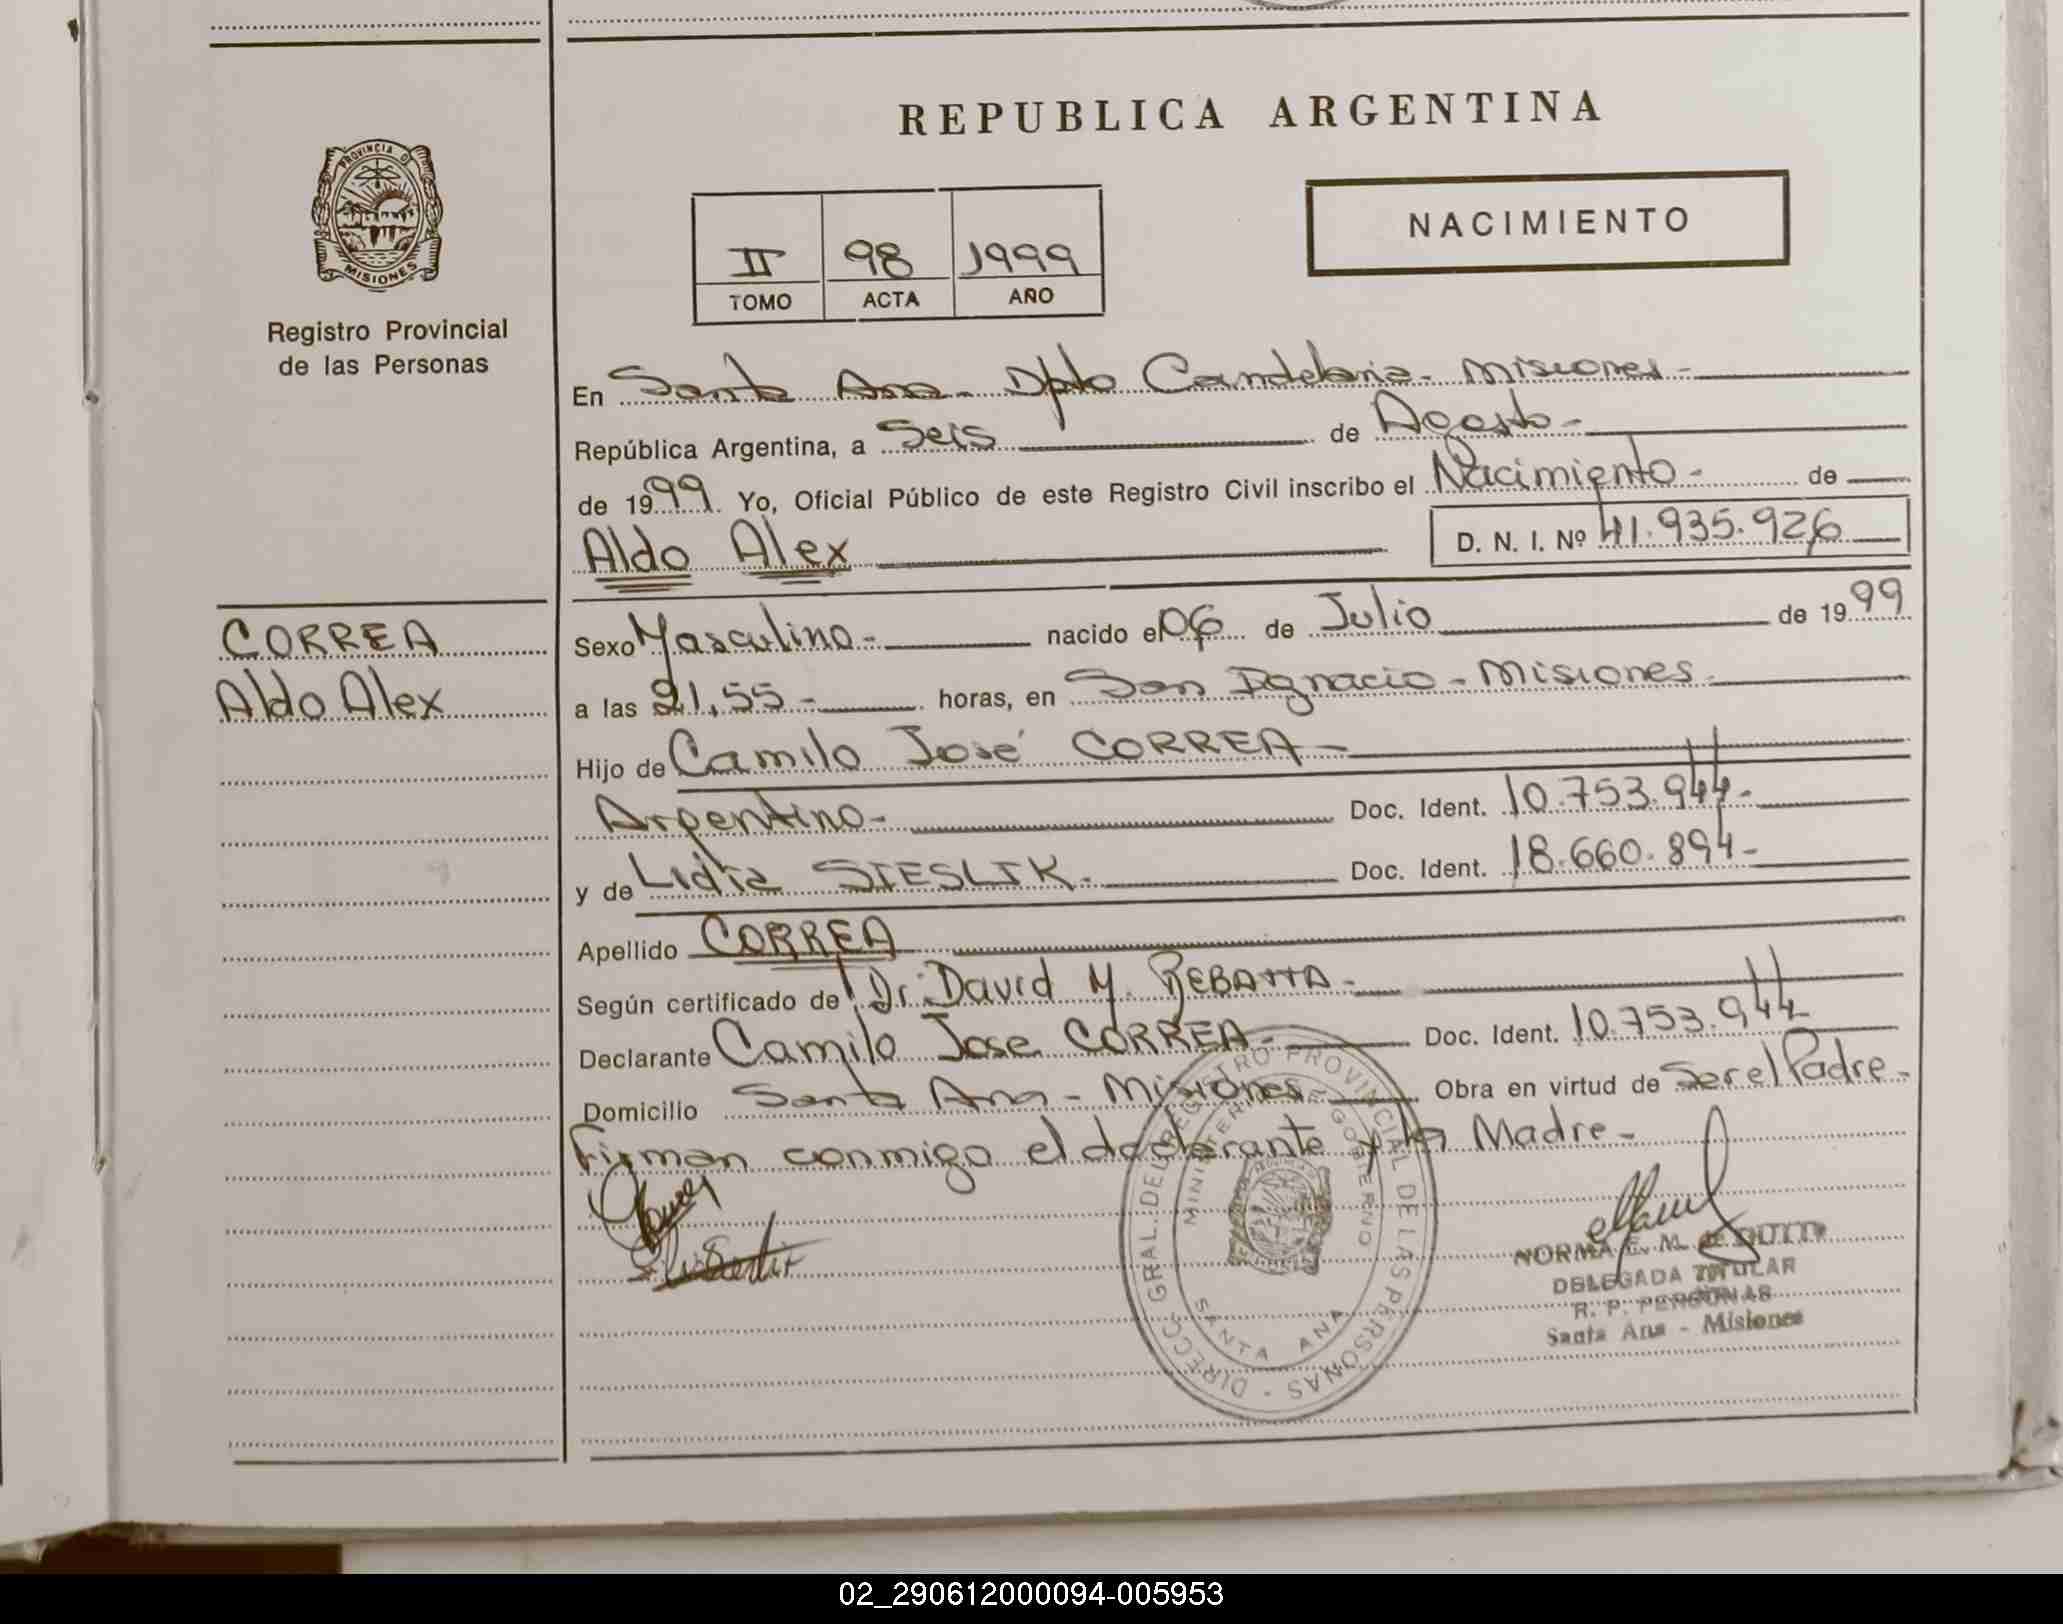 REPUBLICA ARGENTINA
NACIMIENTO
PROVINCIA D
MISIONES
Registro Provincial
de las Personas
II 98 1999
TOMO ACTA AÑO
En Santa Ana - Dpto Candelaria - Misiones -
República Argentina, a Seis de Agosto -
de 1999 Yo, Oficial Público de este Registro Civil inscribo el Nacimiento - de
Aldo Alex D. N. I. Nº 41.935.926
CORREA
Aldo Alex
Sexo Masculino - nacido el 06 de Julio de 1999
a las 21,55 - horas, en San Ignacio - Misiones -
Hijo de Camilo José CORREA -
Argentino - Doc. Ident. 10.753.944 -
y de Lidia SIESLIK - Doc. Ident. 18.660.894 -
Apellido CORREA
Según certificado de Dr. David M. REBATTA -
Declarante Camilo Jose CORREA - Doc. Ident. 10.753.944
Domicilio Santa Ana - Misiones Obra en virtud de Ser el Padre -
Firman conmigo el declarante y la Madre -
DIRECC. GRAL. DEL REGISTRO PROVINCIAL DE LAS PERSONAS -
MINISTERIO DE GOBIERNO
SANTA ANA
NORMA E. M. de
DELEGADA TITULAR
R. P. PERSONAS
Santa Ana - Misiones
02_290612000094-005953